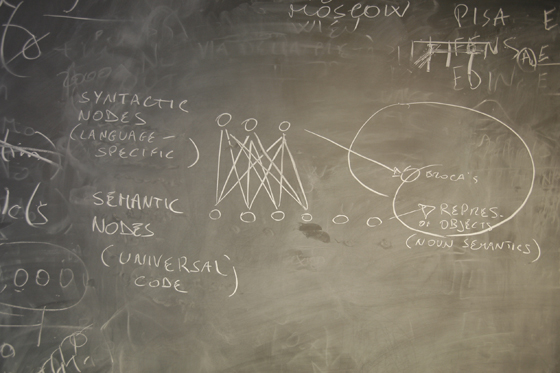 MOSCOW
PISA
E
ATHENS
EDIN
SYNTACTIC
NODES
(LANGUAGE-
SPECIFIC)
BROCA'S
SEMANTIC
NODES
REPRES.
OF OBJECTS
(NOUN SEMANTICS)
(UNIVERSAL
CODE)
,000